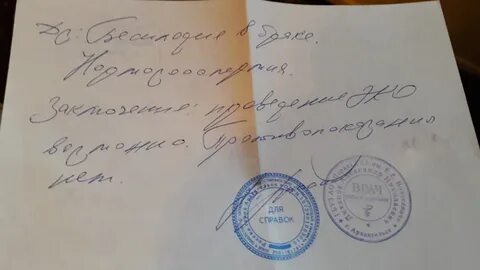 Ds: Бесплодие в браке.
Нормозооспермия.
Заключение: проведение ЭКО
возможно. Противопоказаний
нет.
ДЛЯ
СПРАВОК
ВРАЧ
г. Архангельск